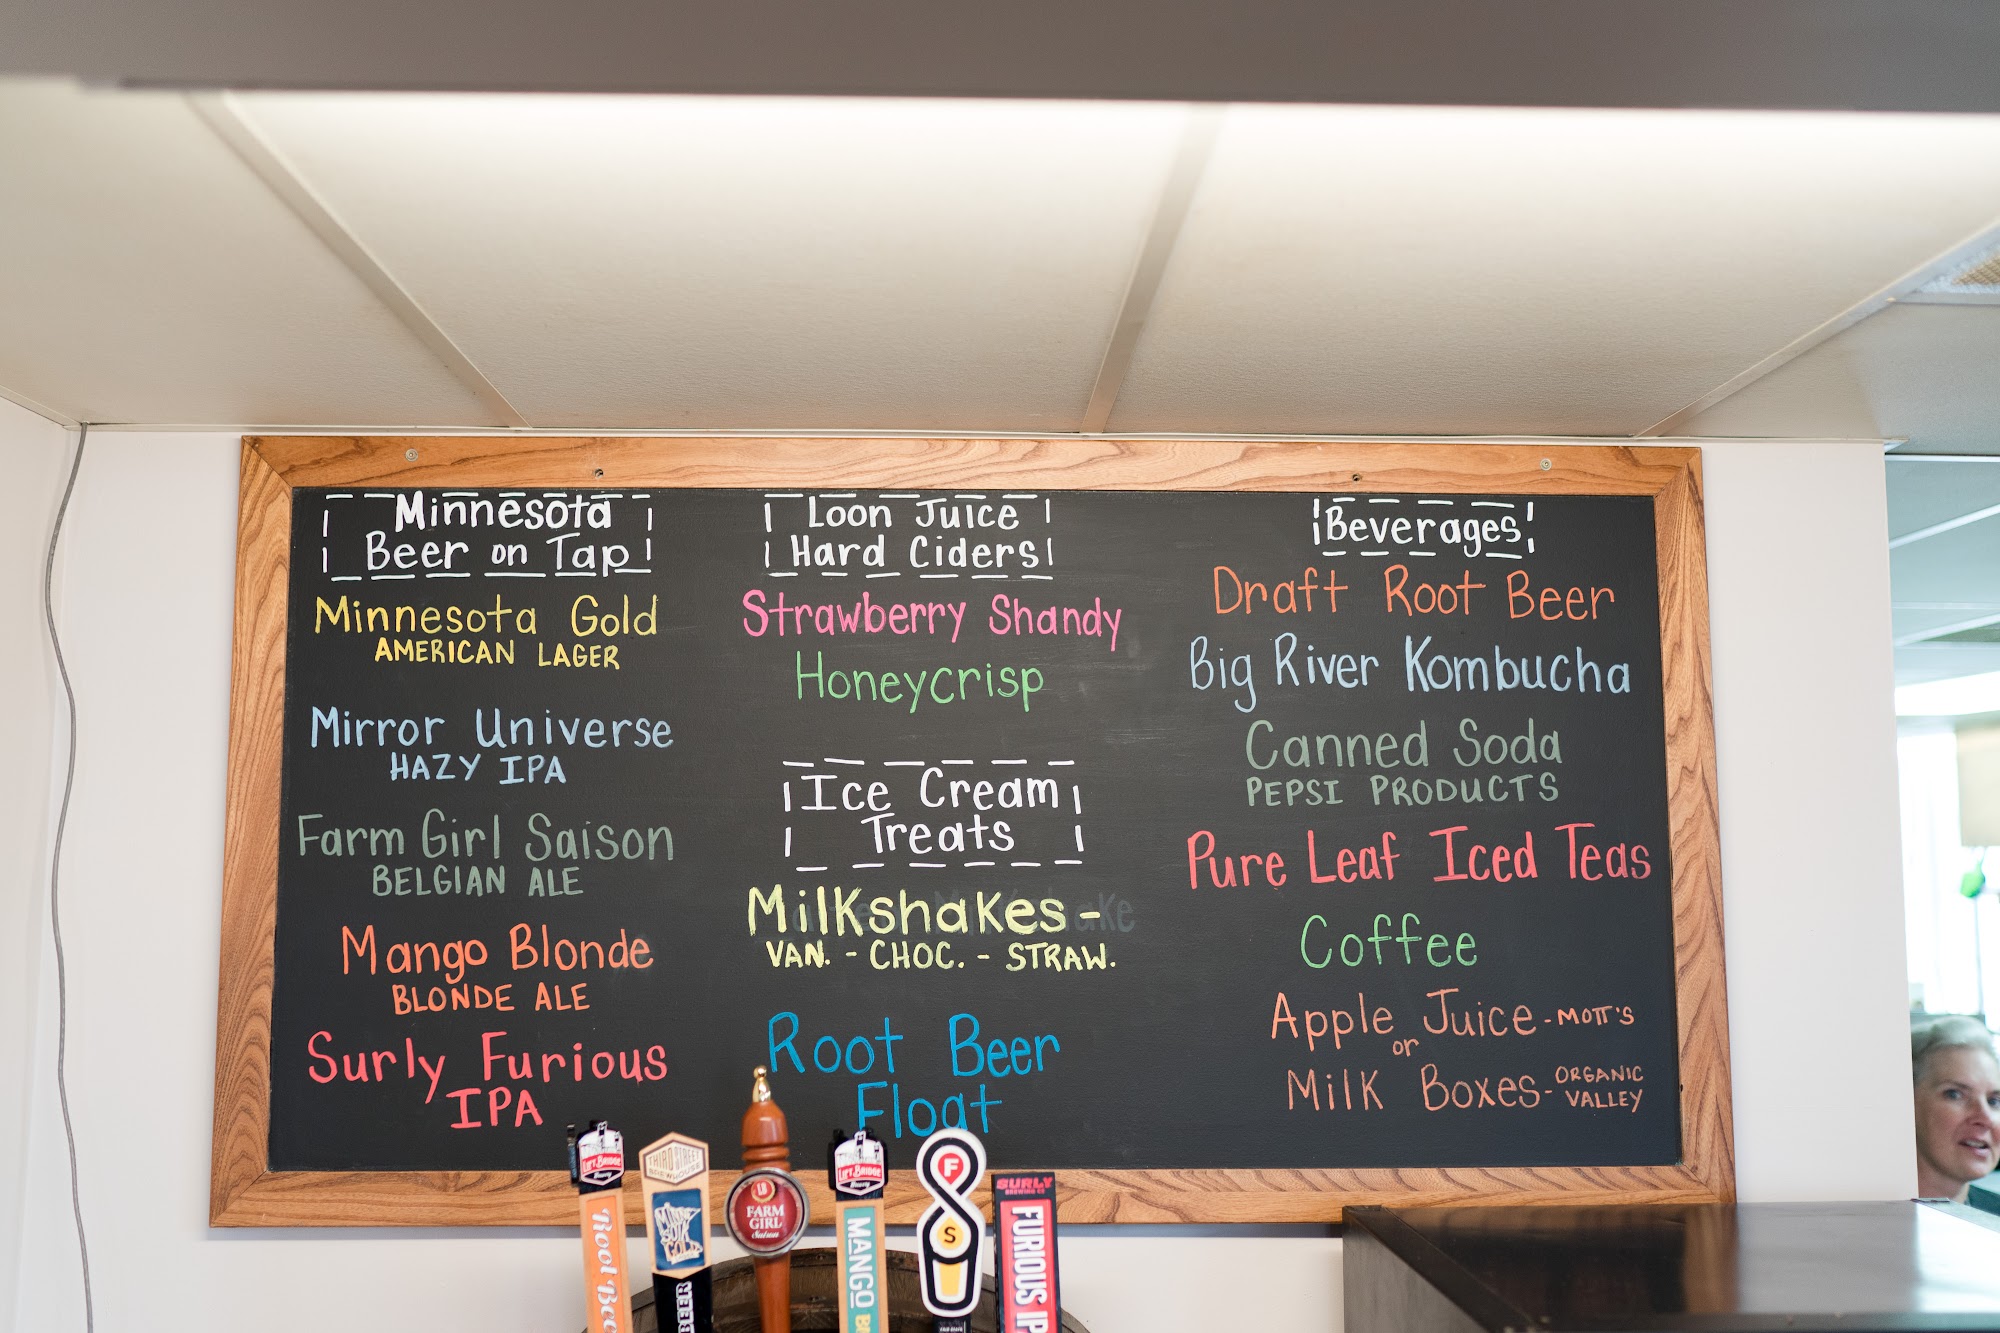 Minnesota
Beer on Tap
Minnesota Gold
AMERICAN LAGER
Mirror Universe
HAZY IPA
Farm Girl Saison
BELGIAN ALE
Mango Blonde
BLONDE ALE
Surly Furious
IPA
Loon Juice
Hard Ciders
Strawberry Shandy
Honeycrisp
Ice Cream
Treats
Milkshakes -
VAN. - CHOC. - STRAW.
Root Beer
Float
Beverages
Draft Root Beer
Big River Kombucha
Canned Soda
PEPSI PRODUCTS
Pure Leaf Iced Teas
Coffee
Apple Juice - MOTT'S
or
Milk Boxes - ORGANIC
VALLEY
LIFT BRIDGE
Root Bee
THIRD STREET
BREWHOUSE
MINNE
SOTA
GOLD
BEER
LB
FARM
GIRL
Saison
LIFT BRIDGE
MANGO B
F
S
SURLY
BREWING CO.
FURIOUS IP